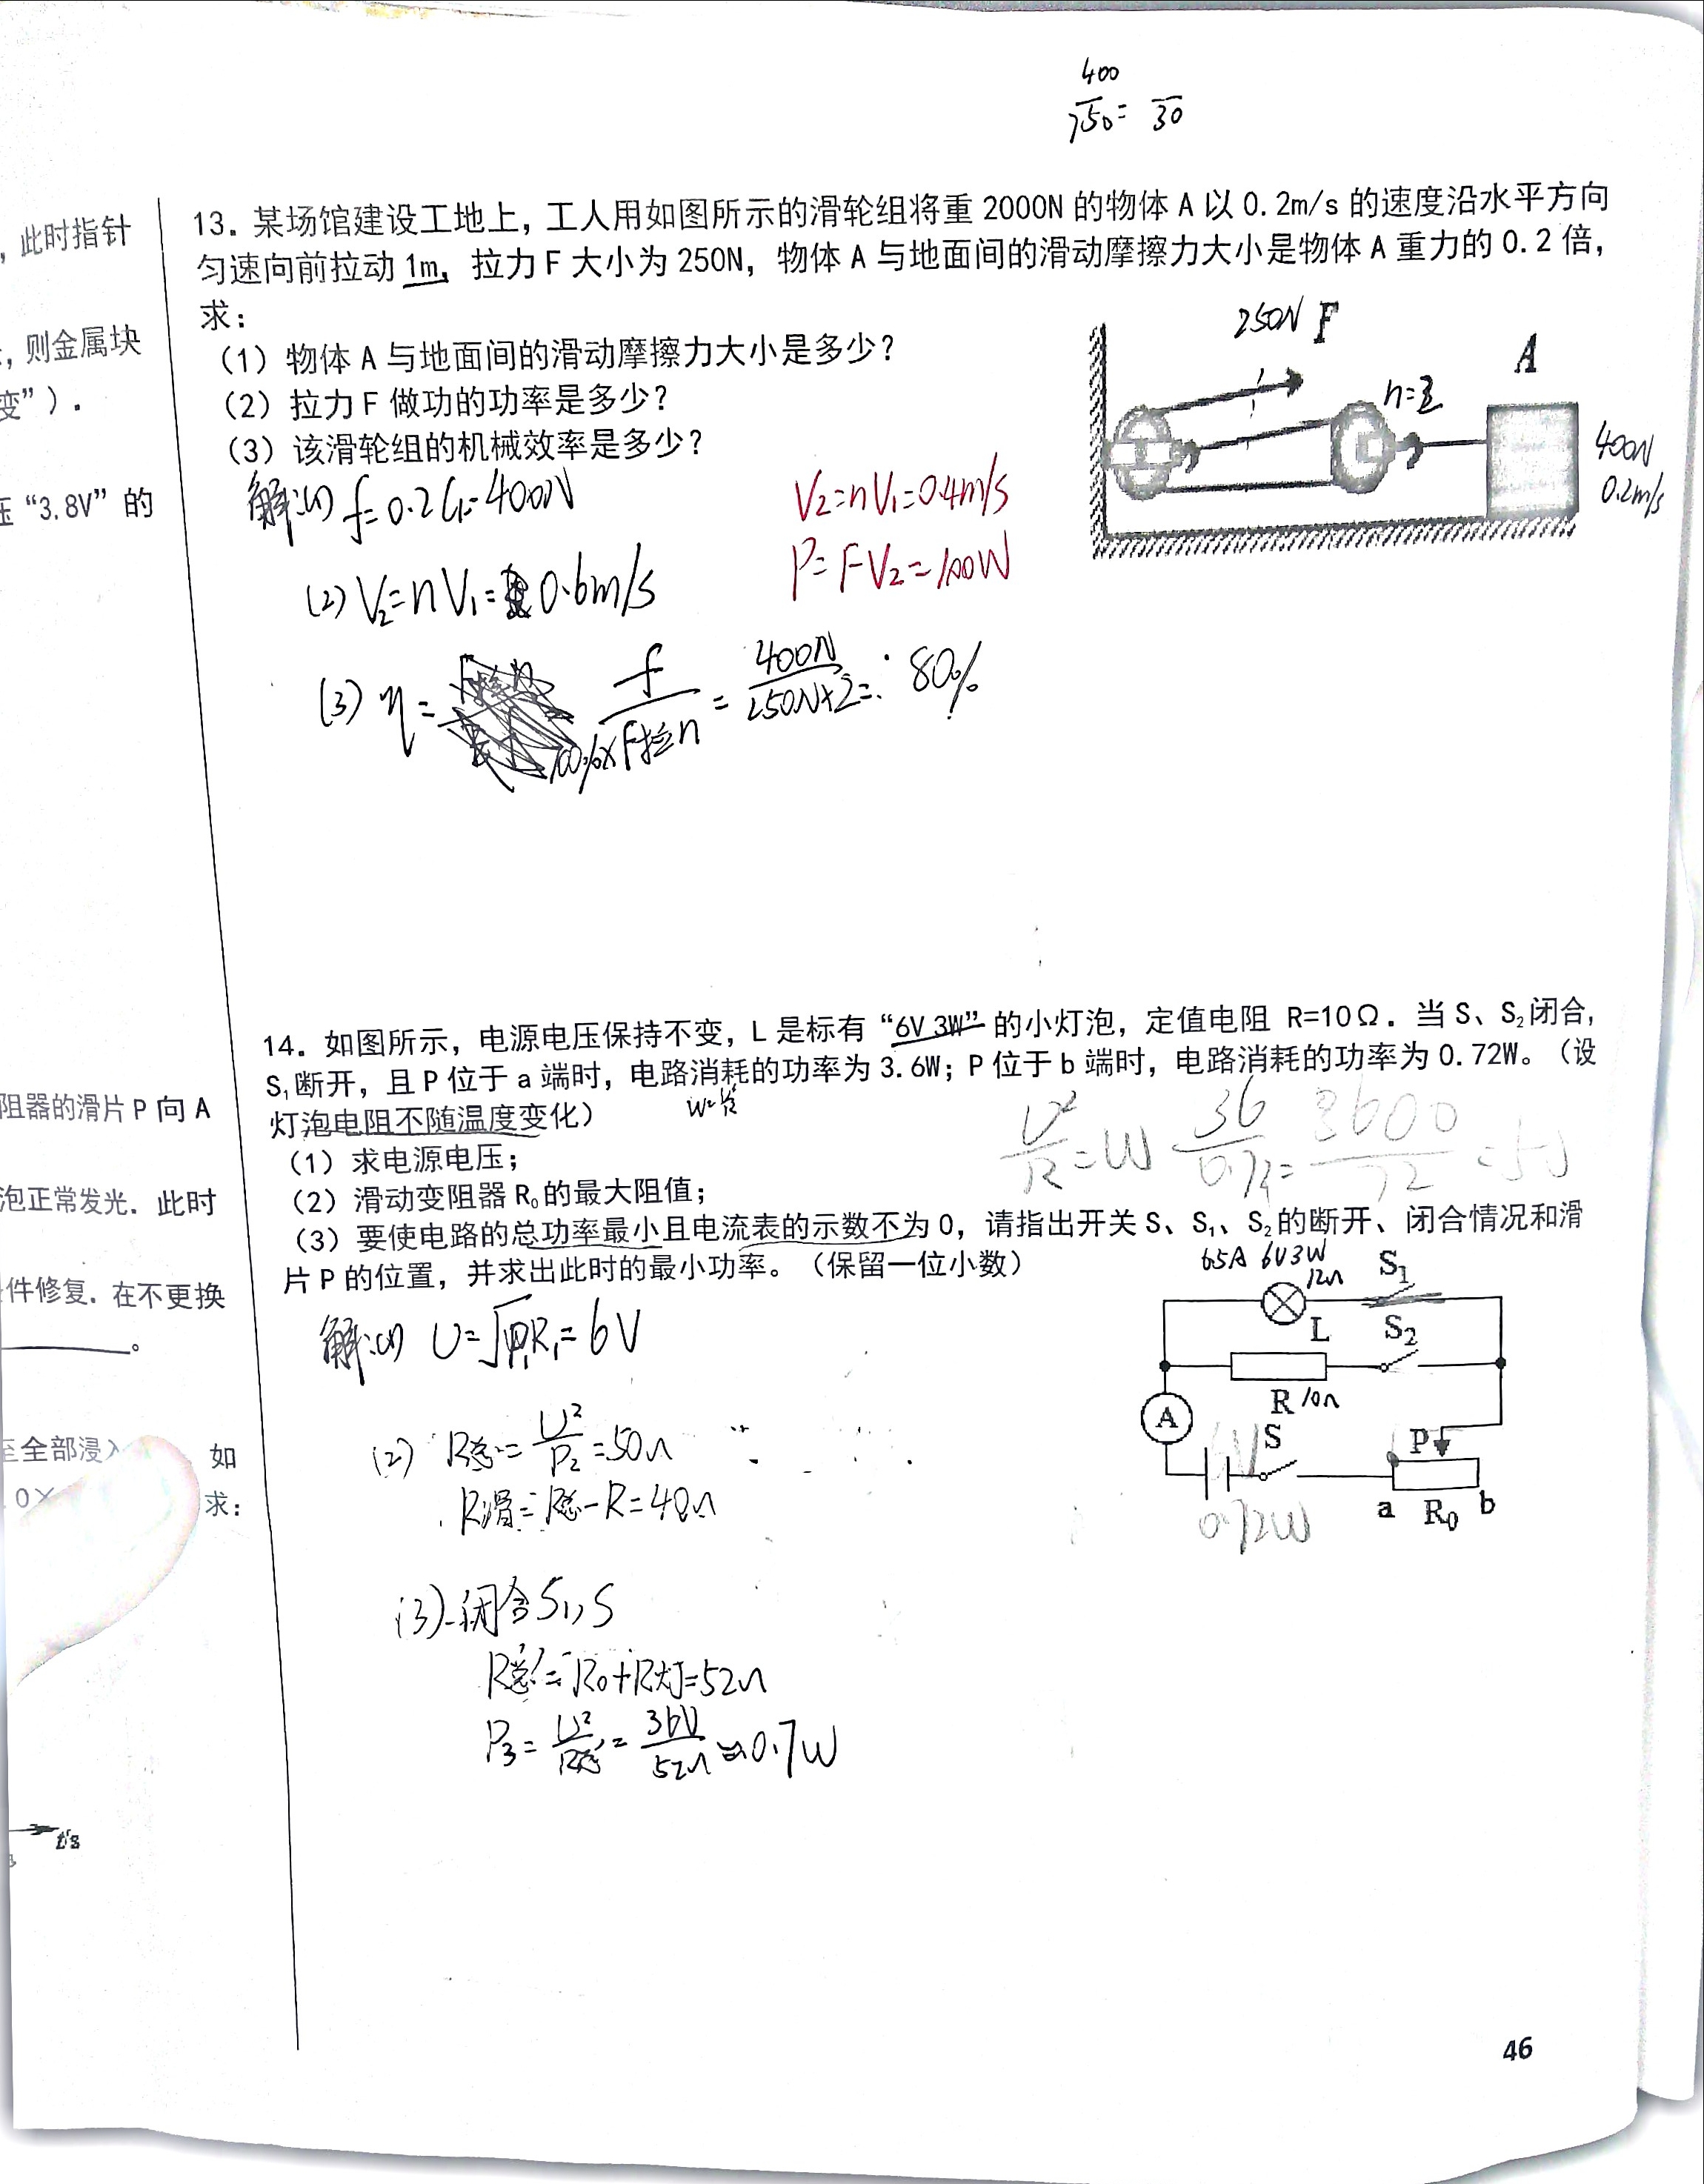 400
250 = 30
,此时指针
,则金属块
变”).
压“3.8V”的
阻器的滑片 P 向 A
泡正常发光. 此时
件修复. 在不更换
。
至全部浸入
如
.0×
求:
t/s
13. 某场馆建设工地上，工人用如图所示的滑轮组将重 2000N 的物体 A 以 0.2m/s 的速度沿水平方向
匀速向前拉动 1m，拉力 F 大小为 250N，物体 A 与地面间的滑动摩擦力大小是物体 A 重力的 0.2 倍，
求：
（1）物体 A 与地面间的滑动摩擦力大小是多少？
（2）拉力 F 做功的功率是多少？
（3）该滑轮组的机械效率是多少？
250N F
A
n=2
400N
0.2m/s
解:(1) f=0.2G=400N
V₂=nV₁=0.4m/s
P=FV₂=100W
(2) V₂=nV₁=0.6m/s
(3) η= f / 100%×F拉n = 400N / 250N×2 = 80%
14. 如图所示，电源电压保持不变，L 是标有“6V 3W”的小灯泡，定值电阻 R=10Ω．当 S、S₂闭合，
S₁断开，且 P 位于 a 端时，电路消耗的功率为 3.6W；P 位于 b 端时，电路消耗的功率为 0.72W。（设
灯泡电阻不随温度变化）
U²/R=W 36/0.72= 3600/72 =50
（1）求电源电压；
（2）滑动变阻器 R₀的最大阻值；
（3）要使电路的总功率最小且电流表的示数不为 0，请指出开关 S、S₁、S₂的断开、闭合情况和滑
片 P 的位置，并求出此时的最小功率。（保留一位小数）
0.5A 6V3W
12Ω
S₁
L
S₂
R 10Ω
A
S
6V
P
a R₀ b
0.72W
解:(1) U=√P₁R₁=6V
(2) R总=U²/P₂=50Ω
R滑=R总-R=40Ω
(3) 闭合S₁,S
R总'=R₀+R灯=52Ω
P₃=U²/R总'=36V/52Ω≈0.7W
46